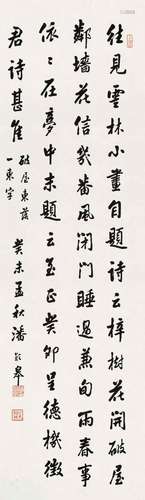 往見雲林小畫自題詩云梓樹花開破屋
鄰墻花信幾番風閉門睡過兼旬雨春事
依〻在夢中末題云至正癸卯呈德機徵
君詩甚佳
破屋東落
一東字
癸未孟秋潘齡皋